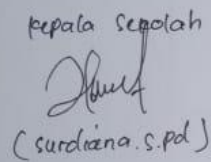 kepala sekolah
(surdiana.s.pd)